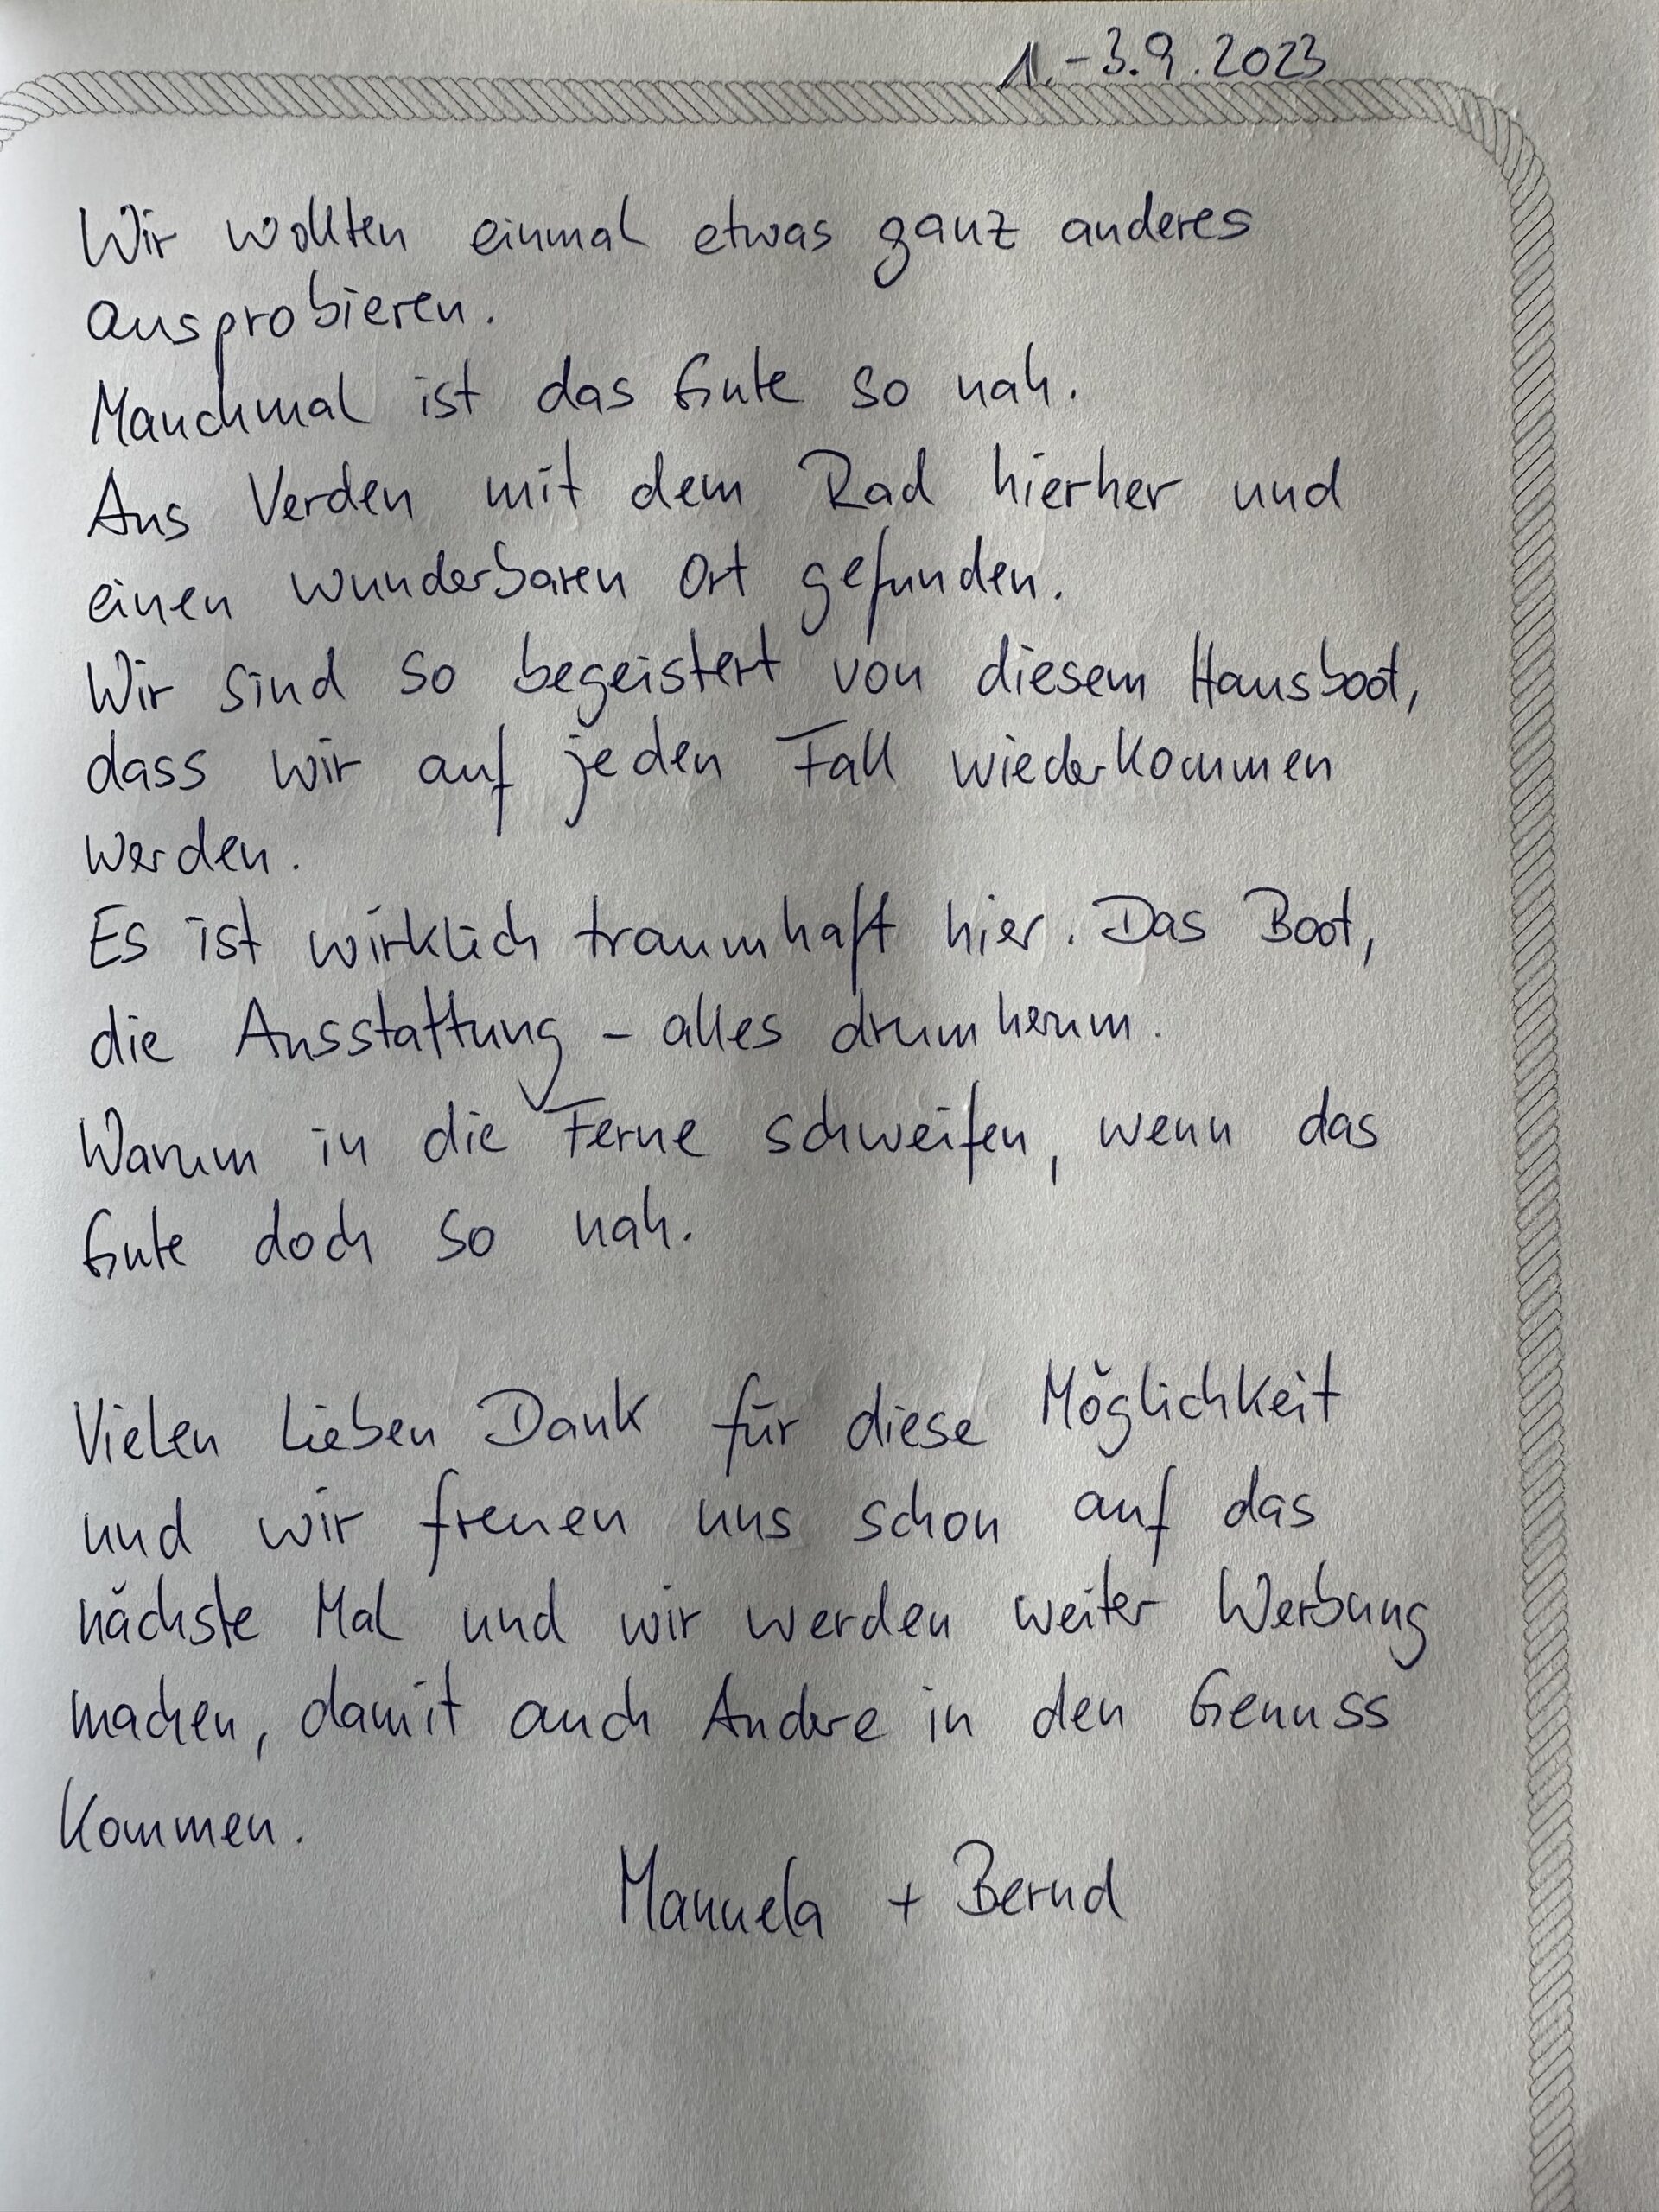 1.-3.9.2023
Wir wollten einmal etwas ganz anderes
ausprobieren.
Manchmal ist das Gute so nah.
Aus Verden mit dem Rad hierher und
einen wunderbaren Ort gefunden.
Wir sind so begeistert von diesem Hausboot,
dass wir auf jeden Fall wiederkommen
werden.
Es ist wirklich traumhaft hier. Das Boot,
die Ausstattung - alles drumherum.
Warum in die Ferne schweifen, wenn das
Gute doch so nah.
Vielen lieben Dank für diese Möglichkeit
und wir freuen uns schon auf das
nächste Mal und wir werden weiter Werbung
machen, damit auch Andere in den Genuss
kommen.
Manuela + Bernd